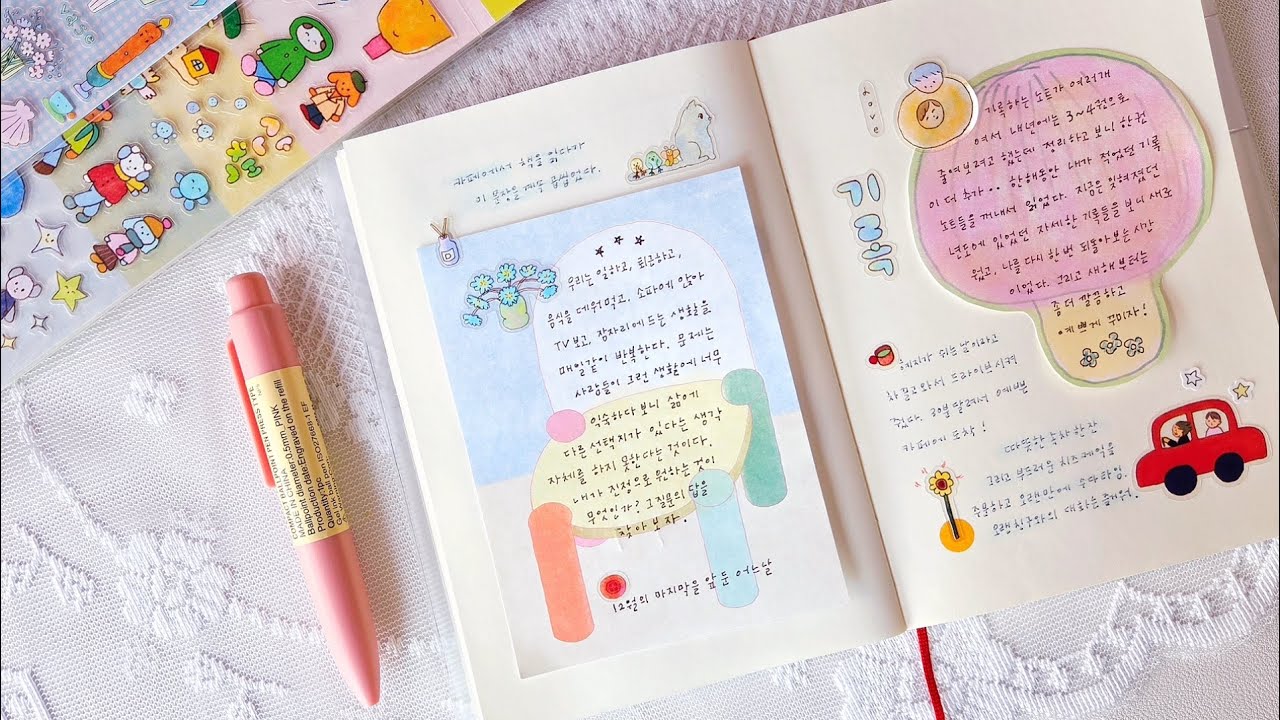 카페에서 책을 읽다가
이 문장을 계속 곱씹었다.
우리는 일하고, 퇴근하고,
음식을 데워먹고, 소파에 앉아
TV보고, 잠자리에 드는 생활을
매일같이 반복한다. 문제는
사람들이 그런 생활에 너무
익숙하다 보니 삶에
다른 선택지가 있다는 생각
자체를 하지 못한다는 것이다.
내가 진정으로 원하는 것이
무엇인가? 그 질문의 답을
찾아보자.
12월의 마지막을 앞둔 어느날
love
기록하는 노트가 여러개
여서 내년에는 3~4권으로
줄여보려고 했는데 정리하고 보니 한권
이 더 추가.. 한해동안 내가 적었던 기록
노트들을 꺼내서 읽었다. 지금은 잊혀졌던
년도에 있었던 자세한 기록들을 보니 새로
웠고, 나를 다시 한번 되돌아보는 시간
이었다. 그리고 새해부터는
좀 더 깔끔하고
예쁘게 꾸미자!
쉬는 날이라고
차 몰고 와서 드라이브시켜
줬다. 30분 달려서 예쁜
카페에 도착!
따뜻한 녹차 한 잔
그리고 부드러운 치즈케익을
주문하고 오랜만에 수다타임
오랜친구와의 대화는 즐거워.
GEL INK BALL POINT PEN PRESS TYPE
MADE IN CHINA
Ball diameter 0.5mm PINK
Production date: Engraved on the refill